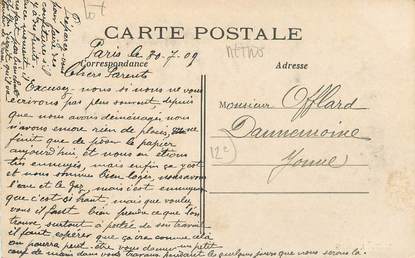 CARTE POSTALE
Correspondance
Adresse
METRO
Paris le 20-7-09
Chers Parents
Excusez nous si nous ne vous
écrivons pas plus souvent depuis
que nous avons déménagés nous
n'avons encore rien de placés, on ne
finit que de poser le papier
aujourd'hui, et nous en étions
très ennuyés, mais enfin ça y est
et nous sommes bien logés, nous avons
l'eau et le gaz, mais c'est ennuyeux
que c'est si haut, mais que voulez
vous il faut bien prendre ce que l'on
trouve surtout à portée de son travail
il faut espérer que ça ira comme cela
on pourra peut-être vous donner un petit
coup de main dans vos travaux pendant les quelques jours que nous serons là.
Préparez-vous
pour faire des
Monsieur Offlard
Dannemoine
Yonne
12e